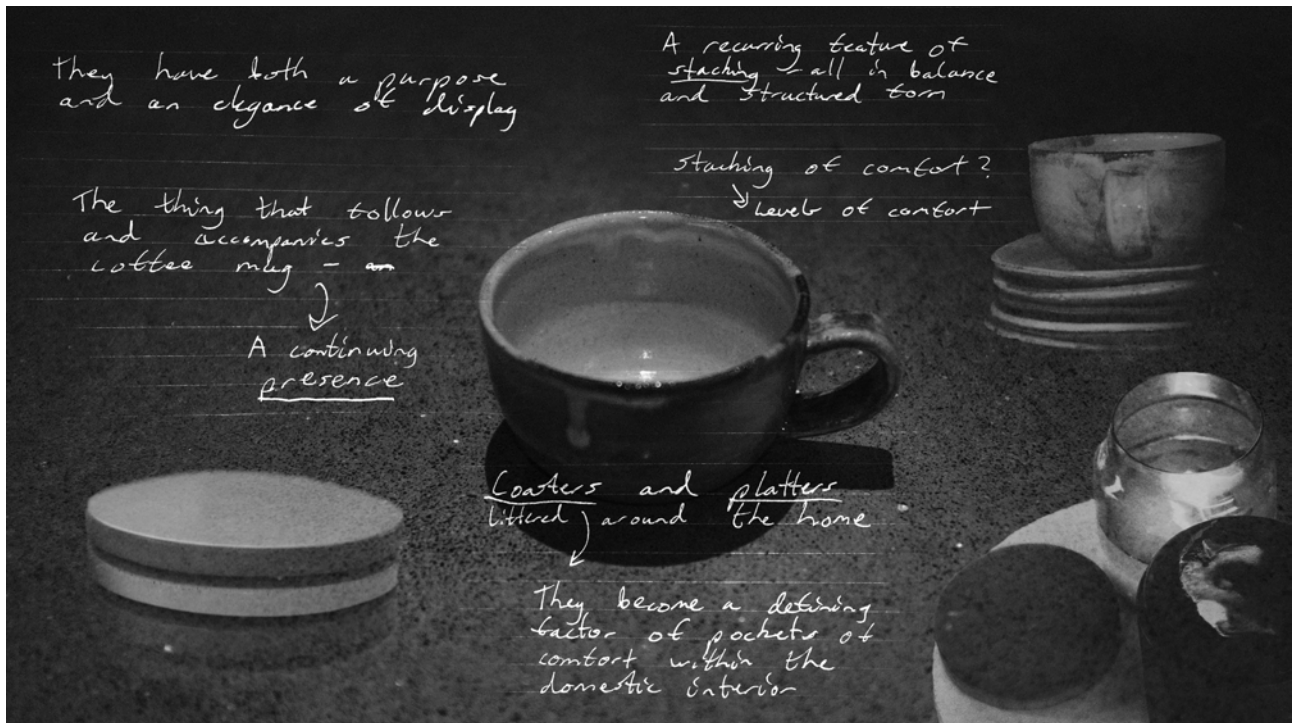 They have both a purpose
and an elegance of display
The thing that follows
and accompanies the
coffee mug –
A continuing
presence
A recurring feature of
stacking – all in balance
and structured form
Stacking of comfort?
Levels of comfort
Coasters and platters
littered around the home
They become a defining
factor of pockets of
comfort within the
domestic interior